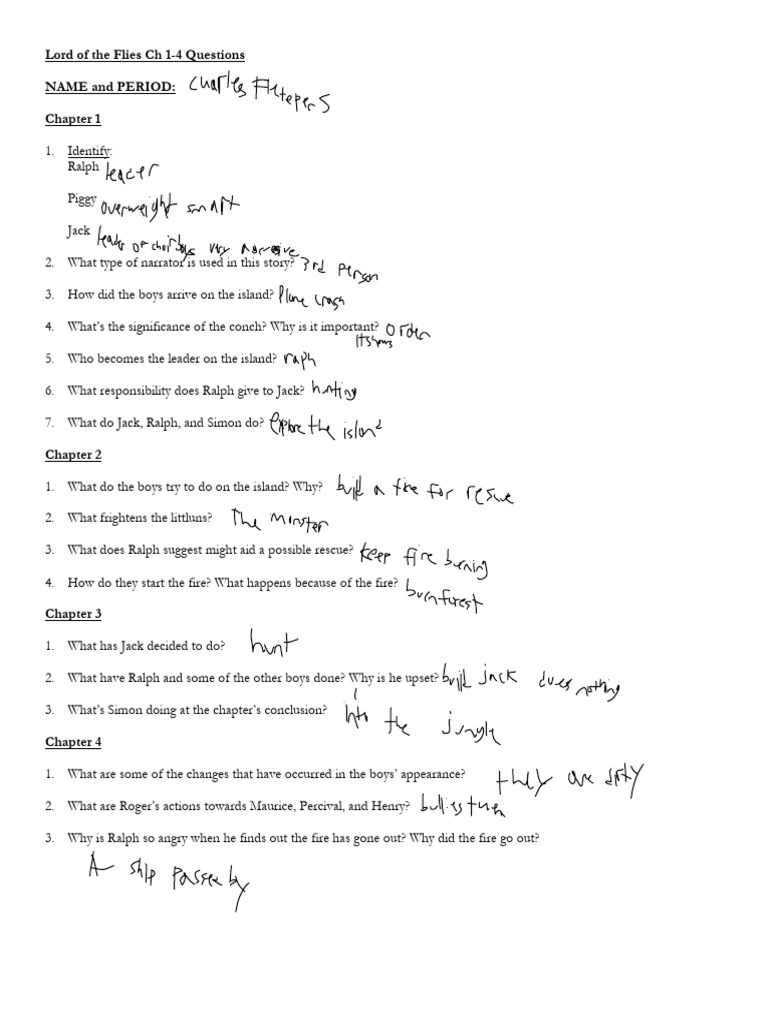 Lord of the Flies Ch 1-4 Questions
NAME and PERIOD: Charles
Chapter 1
1. Identify:
Ralph leader
Piggy overweight smart
Jack leader of choir boys very
2. What type of narrator is used in this story? 3rd person
3. How did the boys arrive on the island? Plane crash
4. What's the significance of the conch? Why is it important? Order
5. Who becomes the leader on the island? raph
6. What responsibility does Ralph give to Jack? hunting
7. What do Jack, Ralph, and Simon do? Explore the island
Chapter 2
1. What do the boys try to do on the island? Why? build a fire for resue
2. What frightens the littluns? The Monster
3. What does Ralph suggest might aid a possible rescue? keep fire burning
4. How do they start the fire? What happens because of the fire? burn forest
Chapter 3
1. What has Jack decided to do? hunt
2. What have Ralph and some of the other boys done? Why is he upset? build jack does nothing
3. What's Simon doing at the chapter's conclusion? Into the jungle
Chapter 4
1. What are some of the changes that have occurred in the boys' appearance? they are dirty
2. What are Roger's actions towards Maurice, Percival, and Henry? bullies them
3. Why is Ralph so angry when he finds out the fire has gone out? Why did the fire go out?
A ship passed by